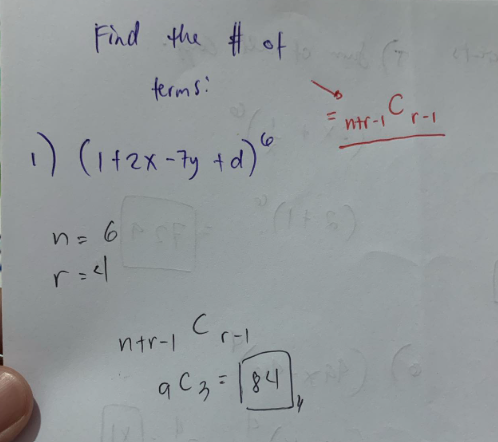 Find the # of
terms:
= n+r-1 C r-1
1) (1+2x-7y+d)^6
n = 6
r = 4
n+r-1 C r-1
9C3 = 84